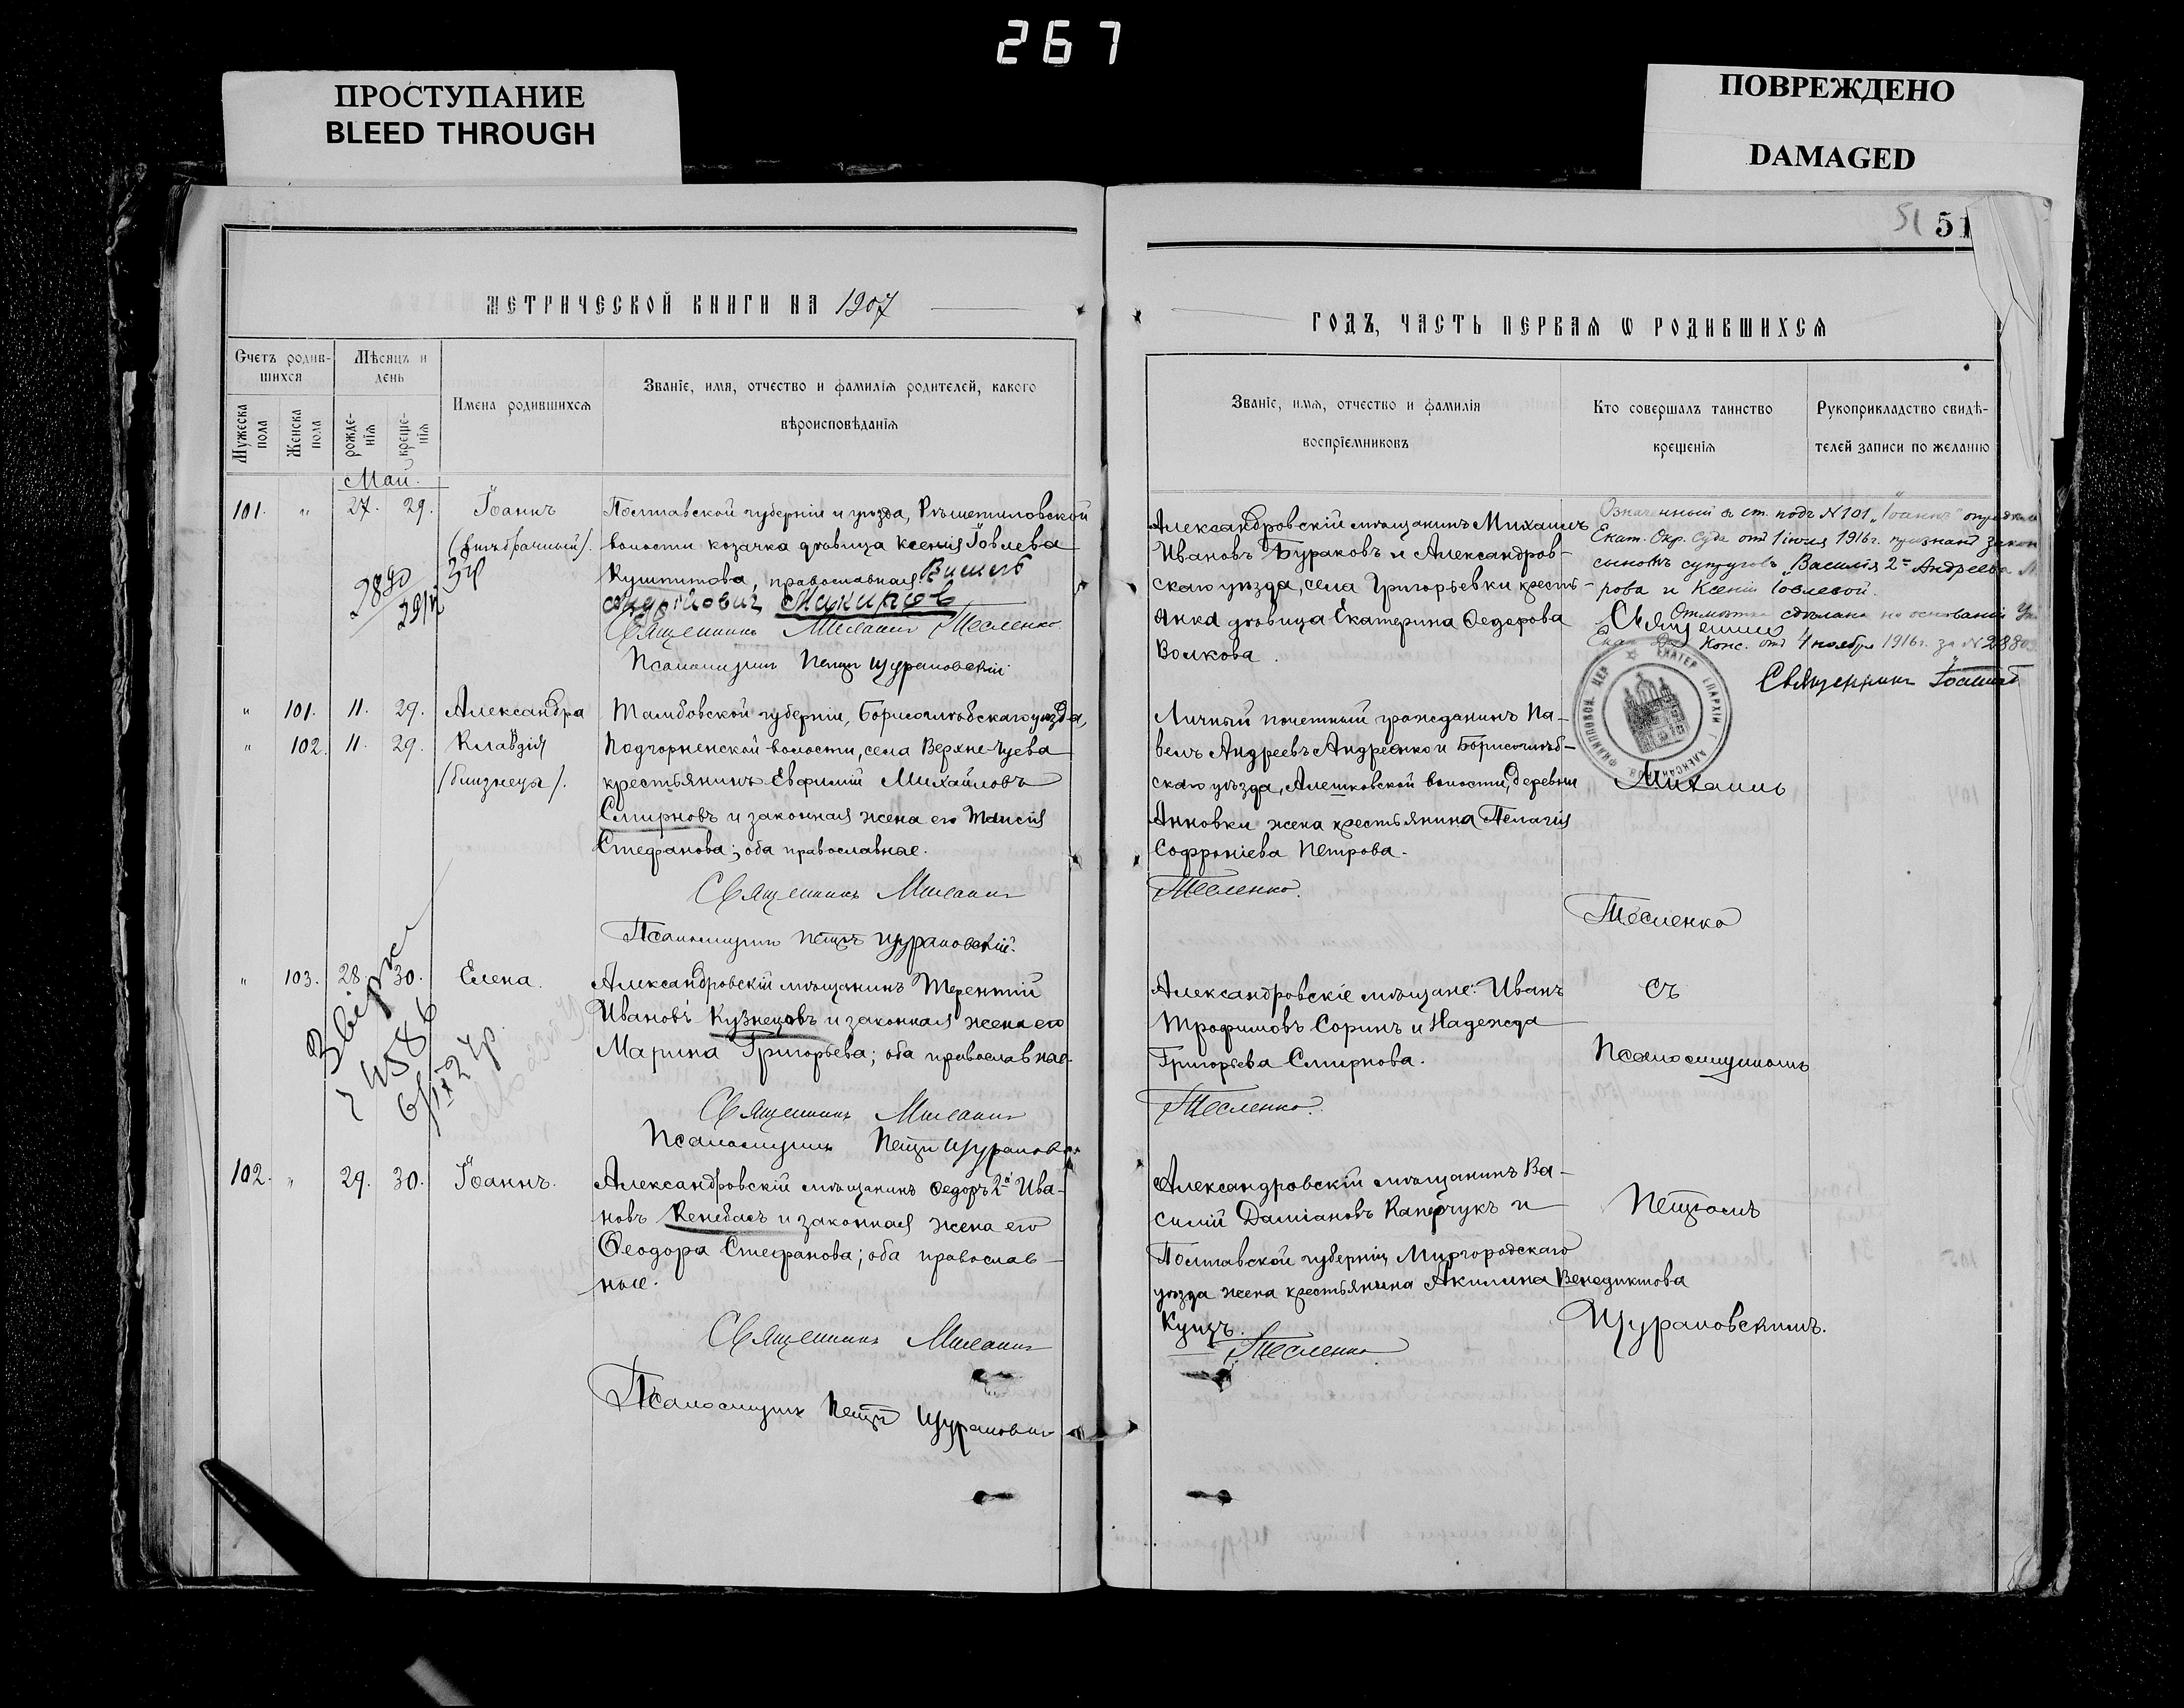 267
ПРОСТУПАНИЕ
BLEED THROUGH
ПОВРЕЖДЕНО
DAMAGED
51 51
МЕТРИЧЕСКОЙ КНИГИ НА 1907
Счетъ родив-
шихся
Мужеска пола
Женска пола
Мѣсяцъ и
день
рожде-
нія
креще-
нія
Имена родившихся
Званіе, имя, отчество и фамилія родителей, какого
вѣроисповѣданія
Май.
101. " 27. 29. Іоаннъ
(внѣбрачный).
Полтавской губерніи и уѣзда, Рѣшетиловской
волости козачка дѣвица Ксенія Іовлева
Кушпитова, православная.
Андрійович Макаров
Священникъ Михаилъ Тесленко
Псаломщикъ Петръ Щурановскій.
2880
29/IV 39
" 101. 11. 29. Александра
" 102. 11. 29. Клавдія
(близнецы).
Тамбовской губерніи, Борисоглѣбскаго уѣзда,
Подгорненской волости, села Верхне-Чуева
крестьянинъ Евфимій Михайловъ
Смирновъ и законная жена его Таисія
Стефанова; оба православные.
Священникъ Михаилъ
Псаломщикъ Петръ Щурановскій.
" 103. 28. 30. Елена.
Александровскій мѣщанинъ Терентій
Ивановъ Кузнецовъ и законная жена его
Марина Григорьева; оба православные.
Священникъ Михаилъ
Псаломщикъ Петръ Щурановскі
4586
6/IX 27р.
102. " 29. 30. Іоаннъ.
Александровскій мѣщанинъ Ѳедоръ 2й Ива-
новъ Кенебасъ и законная жена его
Ѳеодора Стефанова; оба православ-
ные.
Священникъ Михаилъ
Псаломщикъ Петръ Щурановскі
ГОДЪ, ЧАСТЬ ПЕРВАЯ Ѡ РОДИВШИХСЯ
Званіе, имя, отчество и фамилія
воспріемниковъ
Кто совершалъ таинство
крещенія
Рукоприкладство свидѣ-
телей записи по желанію
Александровскій мѣщанинъ Михаилъ
Ивановъ Бураковъ и Александров-
скаго уѣзда, села Григорьевки кресть-
янка дѣвица Екатерина Ѳедорова
Волкова.
Означенный в ст. подъ №101 "Іоаннъ"
Екат. Окр. Суда от 1 іюля 1916г. признанъ закон
сыномъ супруговъ Василія 2го Андреева
рова и Ксеніи Іовлевой.
Отмѣтка сдѣлана на основаніи
Конс. от 4 ноября 1916г. за №28803
Священникъ
Священникъ Іоаннъ
Личный почетный гражданинъ Па-
велъ Андреевъ Андреенко и Борисоглѣб-
скаго уѣзда, Алешковской волости, деревни
Анновки жена крестьянина Пелагія
Софроніева Петрова.
Тесленко.
Михаилъ
Тесленко
Александровскіе мѣщане: Иванъ
Трофимовъ Соринъ и Надежда
Григорьева Смирнова.
Тесленко.
съ
Псаломщикомъ
Александровскій мѣщанинъ Ва-
силій Даміановъ Каперчукъ и
Полтавской губерніи, Миргородскаго
уѣзда жена крестьянина Акилина Венедиктова
Куцъ.
Тесленко
Петромъ
Щурановскимъ.